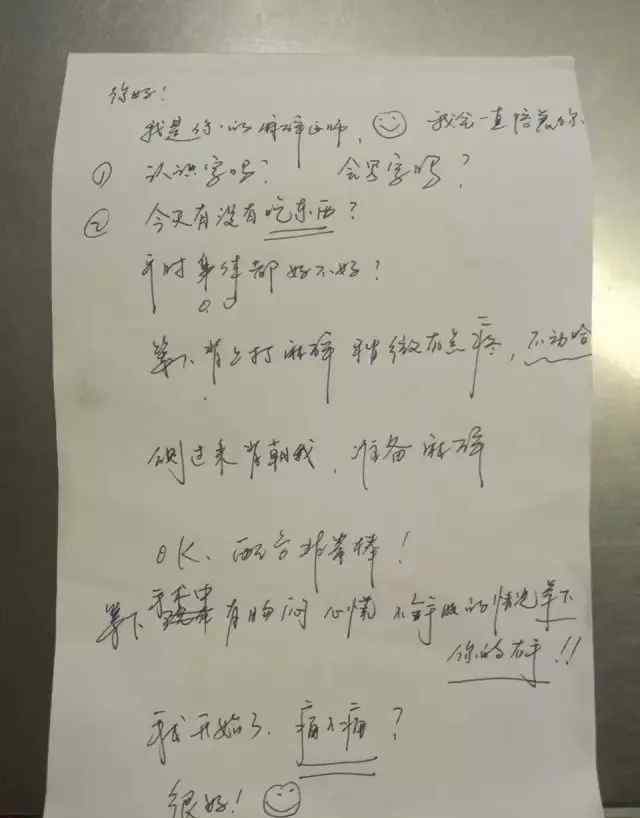 你好!
我是你的麻醉医师, 我会一直陪着你
① 认识字吗? 会写字吗?
② 今天有没有吃东西?
平时身体都好不好?
等下背上打麻醉 稍微有点疼, 不动哈
侧过来背朝我, 准备麻醉
OK、配合非常棒!
等下手术中有胸闷 心慌 不舒服的情况举下
你的右手!!
我开始了. 痛不痛?
很好!